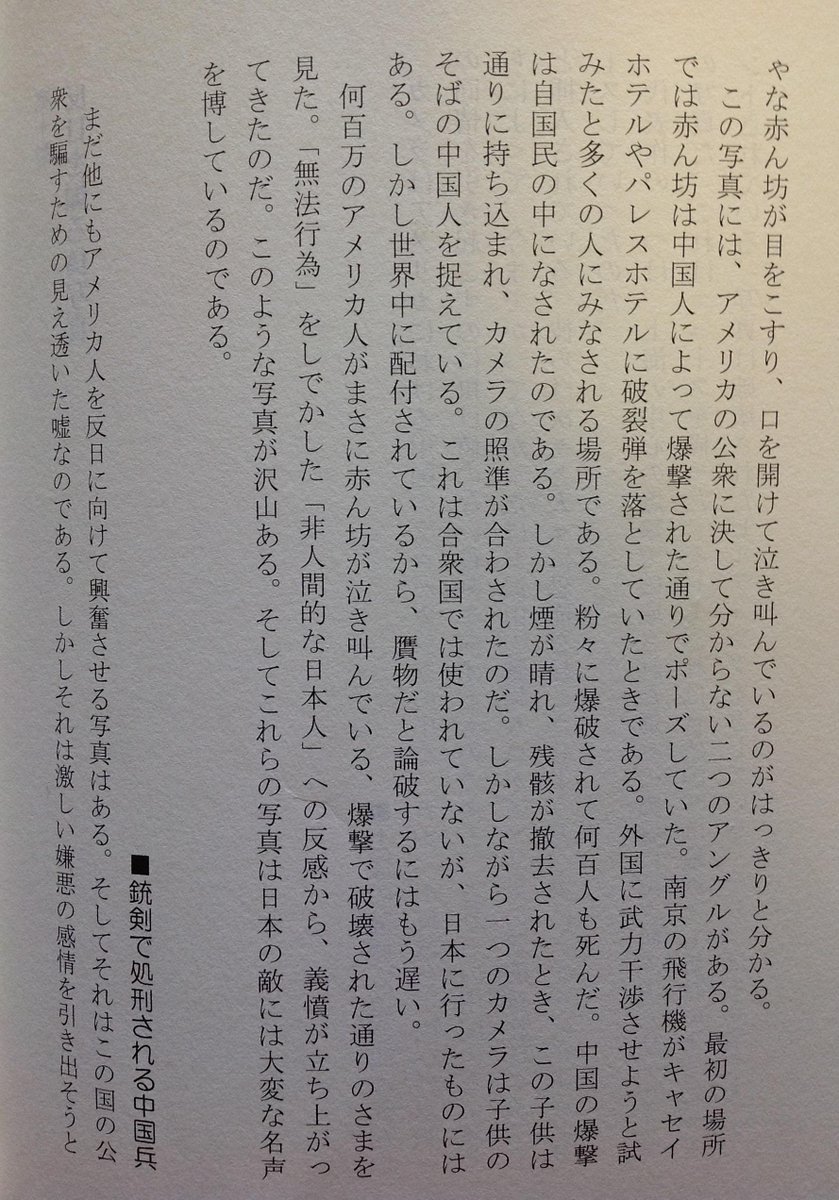 やな赤ん坊が目をこすり、口を開けて泣き叫んでいるのがはっきりと分かる。
この写真には、アメリカの公衆に決して分からない二つのアングルがある。最初の場所
では赤ん坊は中国人によって爆撃された通りでポーズしていた。南京の飛行機がキャセイ
ホテルやパレスホテルに破裂弾を落としていたときである。外国に武力干渉させようと試
みたと多くの人にみなされる場所である。粉々に爆破されて何百人も死んだ。中国の爆撃
は自国民の中になされたのである。しかし煙が晴れ、残骸が撤去されたとき、この子供は
通りに持ち込まれ、カメラの照準が合わされたのだ。しかしながら一つのカメラは子供の
そばの中国人を捉えている。これは合衆国では使われていないが、日本に行ったものには
ある。しかし世界中に配付されているから、贋物だと論破するにはもう遅い。
何百万のアメリカ人がまさに赤ん坊が泣き叫んでいる、爆撃で破壊された通りのさまを
見た。「無法行為」をしでかした「非人間的な日本人」への反感から、義憤が立ち上がっ
てきたのだ。このような写真が沢山ある。そしてこれらの写真は日本の敵には大変な名声
を博しているのである。
■銃剣で処刑される中国兵
まだ他にもアメリカ人を反日に向けて興奮させる写真はある。そしてそれはこの国の公
衆を騙すための見え透いた嘘なのである。しかしそれは激しい嫌悪の感情を引き出そうと